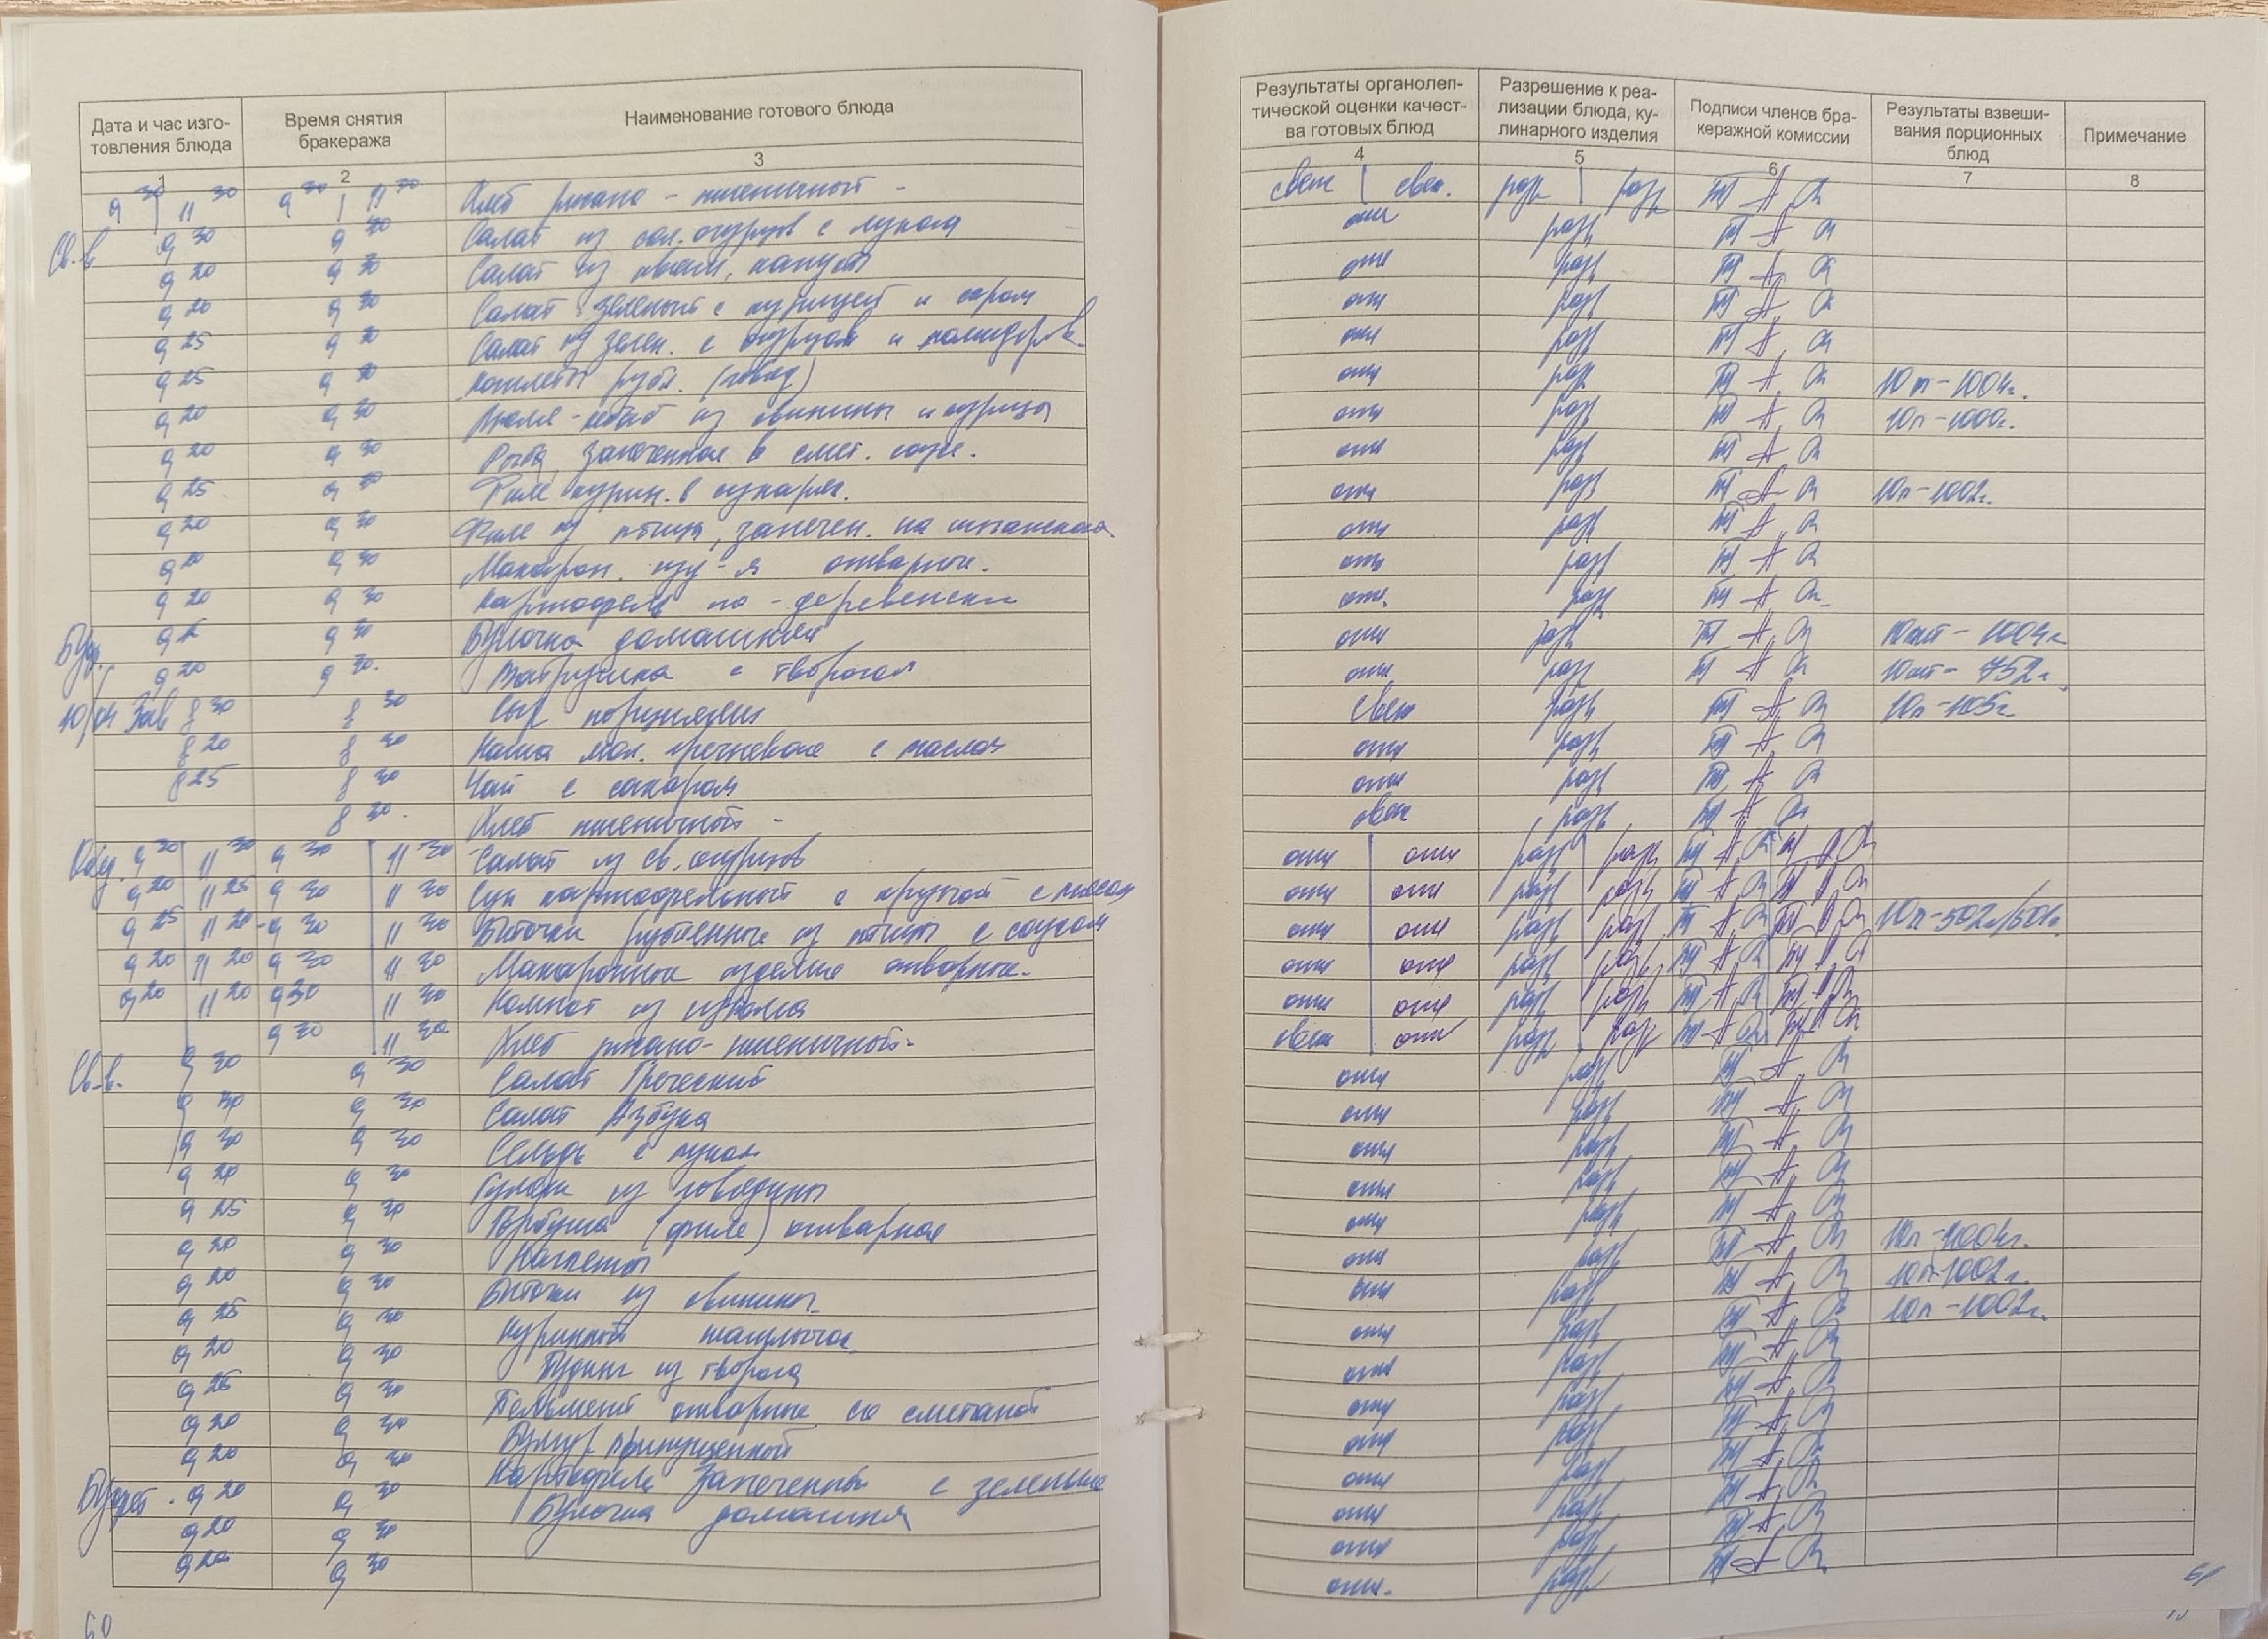 Дата и час изго-
товления блюда
Время снятия
бракеража
Наименование готового блюда
Результаты органолеп-
тической оценки качест-
ва готовых блюд
Разрешение к реа-
лизации блюда, ку-
линарного изделия
Подписи членов бра-
керажной комиссии
Результаты взвеши-
вания порционных
блюд
Примечание
1 2 3 4 5 6 7 8
9 30 11 30 9 30 11 30 Хлеб ржано - пшеничный - свеж свеж. разр разр
Св. в 9 30 9 30 Салат из сол. огурцов с луком отл разр
9 20 9 30 Салат из квашен. капусты отл разр
9 20 9 30 Салат зеленый с курицей и сыром отл разр
9 25 9 30 Салат из зелен. с огурцом и помидорів отл разр
9 25 9 30 Котлеты рубл. (говяд) отл разр 10 п - 1004г.
9 20 9 30 Люля-кебаб из свинины и курицы отл разр 10п - 1000г.
9 20 9 30 Рыба, запеченная в смет. соусе. отл разр
9 25 9 30 Филе курин. в сухарях. отл разр 10п - 1002г.
9 20 9 30 Филе из птицы, запечен. на отл разр
9 20 9 30 Макарон. изд-я отварные. отл разр
9 20 9 30 Картофель по - деревенски отл. разр
Буф. 9 30 Булочка домашняя отл разр 10шт - 1004г
9 20 9 30. Ватрушка с творогом отл разр 10шт - 752г.
10/04 Зав 8 30 8 30 Сыр порциями свеж разр 10п - 105г.
8 20 8 30 Каша мол. гречневая с маслом отл разр
8 25 8 30 Чай с сахаром отл разр
8 30. Хлеб пшеничный - свеж разр
Обед. 9 30 11 30 9 30 11 30 Салат из св. огурцов отл отл разр разр
9 20 11 25 9 30 11 30 Суп картофельный с крупой с мясом отл отл разр разр
9 25 11 20 9 30 11 30 Биточки рубленные из птицы с соусом отл отл разр разр 10п-502г/501г.
9 20 11 20 9 30 11 30 Макаронные изделие отварные. отл отл разр разр
9 20 11 20 9 30 11 30 Компот из изюма отл отл разр разр
9 30 11 30 Хлеб ржано- пшеничный- свеж отл разр разр
Св. в. 9 30 9 30 Салат Греческий отл разр
9 30 9 30 Салат Азбука отл разр
9 30 9 30 Сельдь с луком отл разр
9 20 9 30 Гуляш из говядины отл разр
9 25 9 30 Горбуша (филе) отварная отл разр
9 20 9 30 Наггетсы отл разр 10п - 1004г.
9 20 9 30 Биточки из свинины. отл разр 10п-1002г.
9 25 9 30 Куриный шашлычок отл разр 10п - 1002г.
9 20 9 30 Пудинг из творога отл разр
9 25 9 30 Пельмени отварные со сметаной отл разр
9 20 9 30 Булгур припущенный отл разр
9 20 9 30 Картофель запеченный с зеленью отл разр
Буфет. 9 20 9 30 Булочка домашняя отл разр
9 20 9 30 отл разр
9 20 9 30 отл. разр
60
61